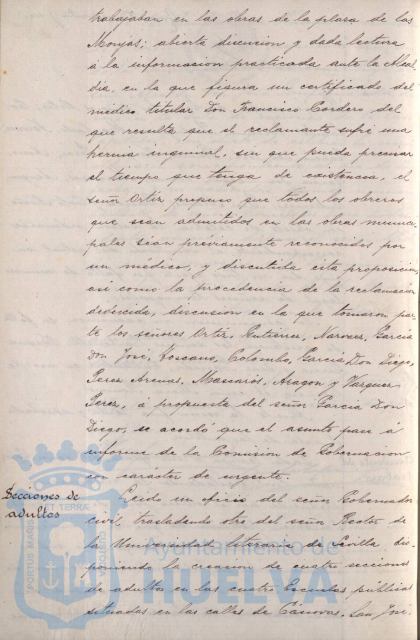 trabajaban en las obras de la plaza de las
Monjas; abierta discusion y dada lectura
á la informacion practicada ante la Alcal
dia, en la que figura un certificado del
médico titular Don Francisco Cordero del
que resulta que el reclamante sufre una
hernia inguinal, sin que pueda precisar
el tiempo que tenga de existencia, el
señor Ortiz propuso que todos los obreros
que sean admitidos en las obras munici
pales sean préviamente reconocidos por
un médico, y discutida esta proposicion
asi como la procedencia de la reclamacion
deducida, discusion en la que tomaron par
te los señores Ortiz, Gutierrez, Narvaez, Garcia
Don José, Toscano, Colombo, Garcia Don Diego,
Perez Arenas, Mascarós, Aragon y Vazquez
Perez, á propuesta del señor Garcia Don
Diego, se acordó que el asunto pase á
informe de la Comision de Gobernacion
con carácter de urgente.
Secciones de
adultos
Leido un oficio del señor Gobernador
civil, trasladando otro del señor Rector de
la Universidad literaria de Sevilla dis
poniendo la creacion de cuatro secciones
de adultos en las cuatro Escuelas públicas
situadas en las calles de Cánovas, San José,
Ayuntamiento de
HUELVA
PORTUS MARIS ET TERRAE CUSTODIA